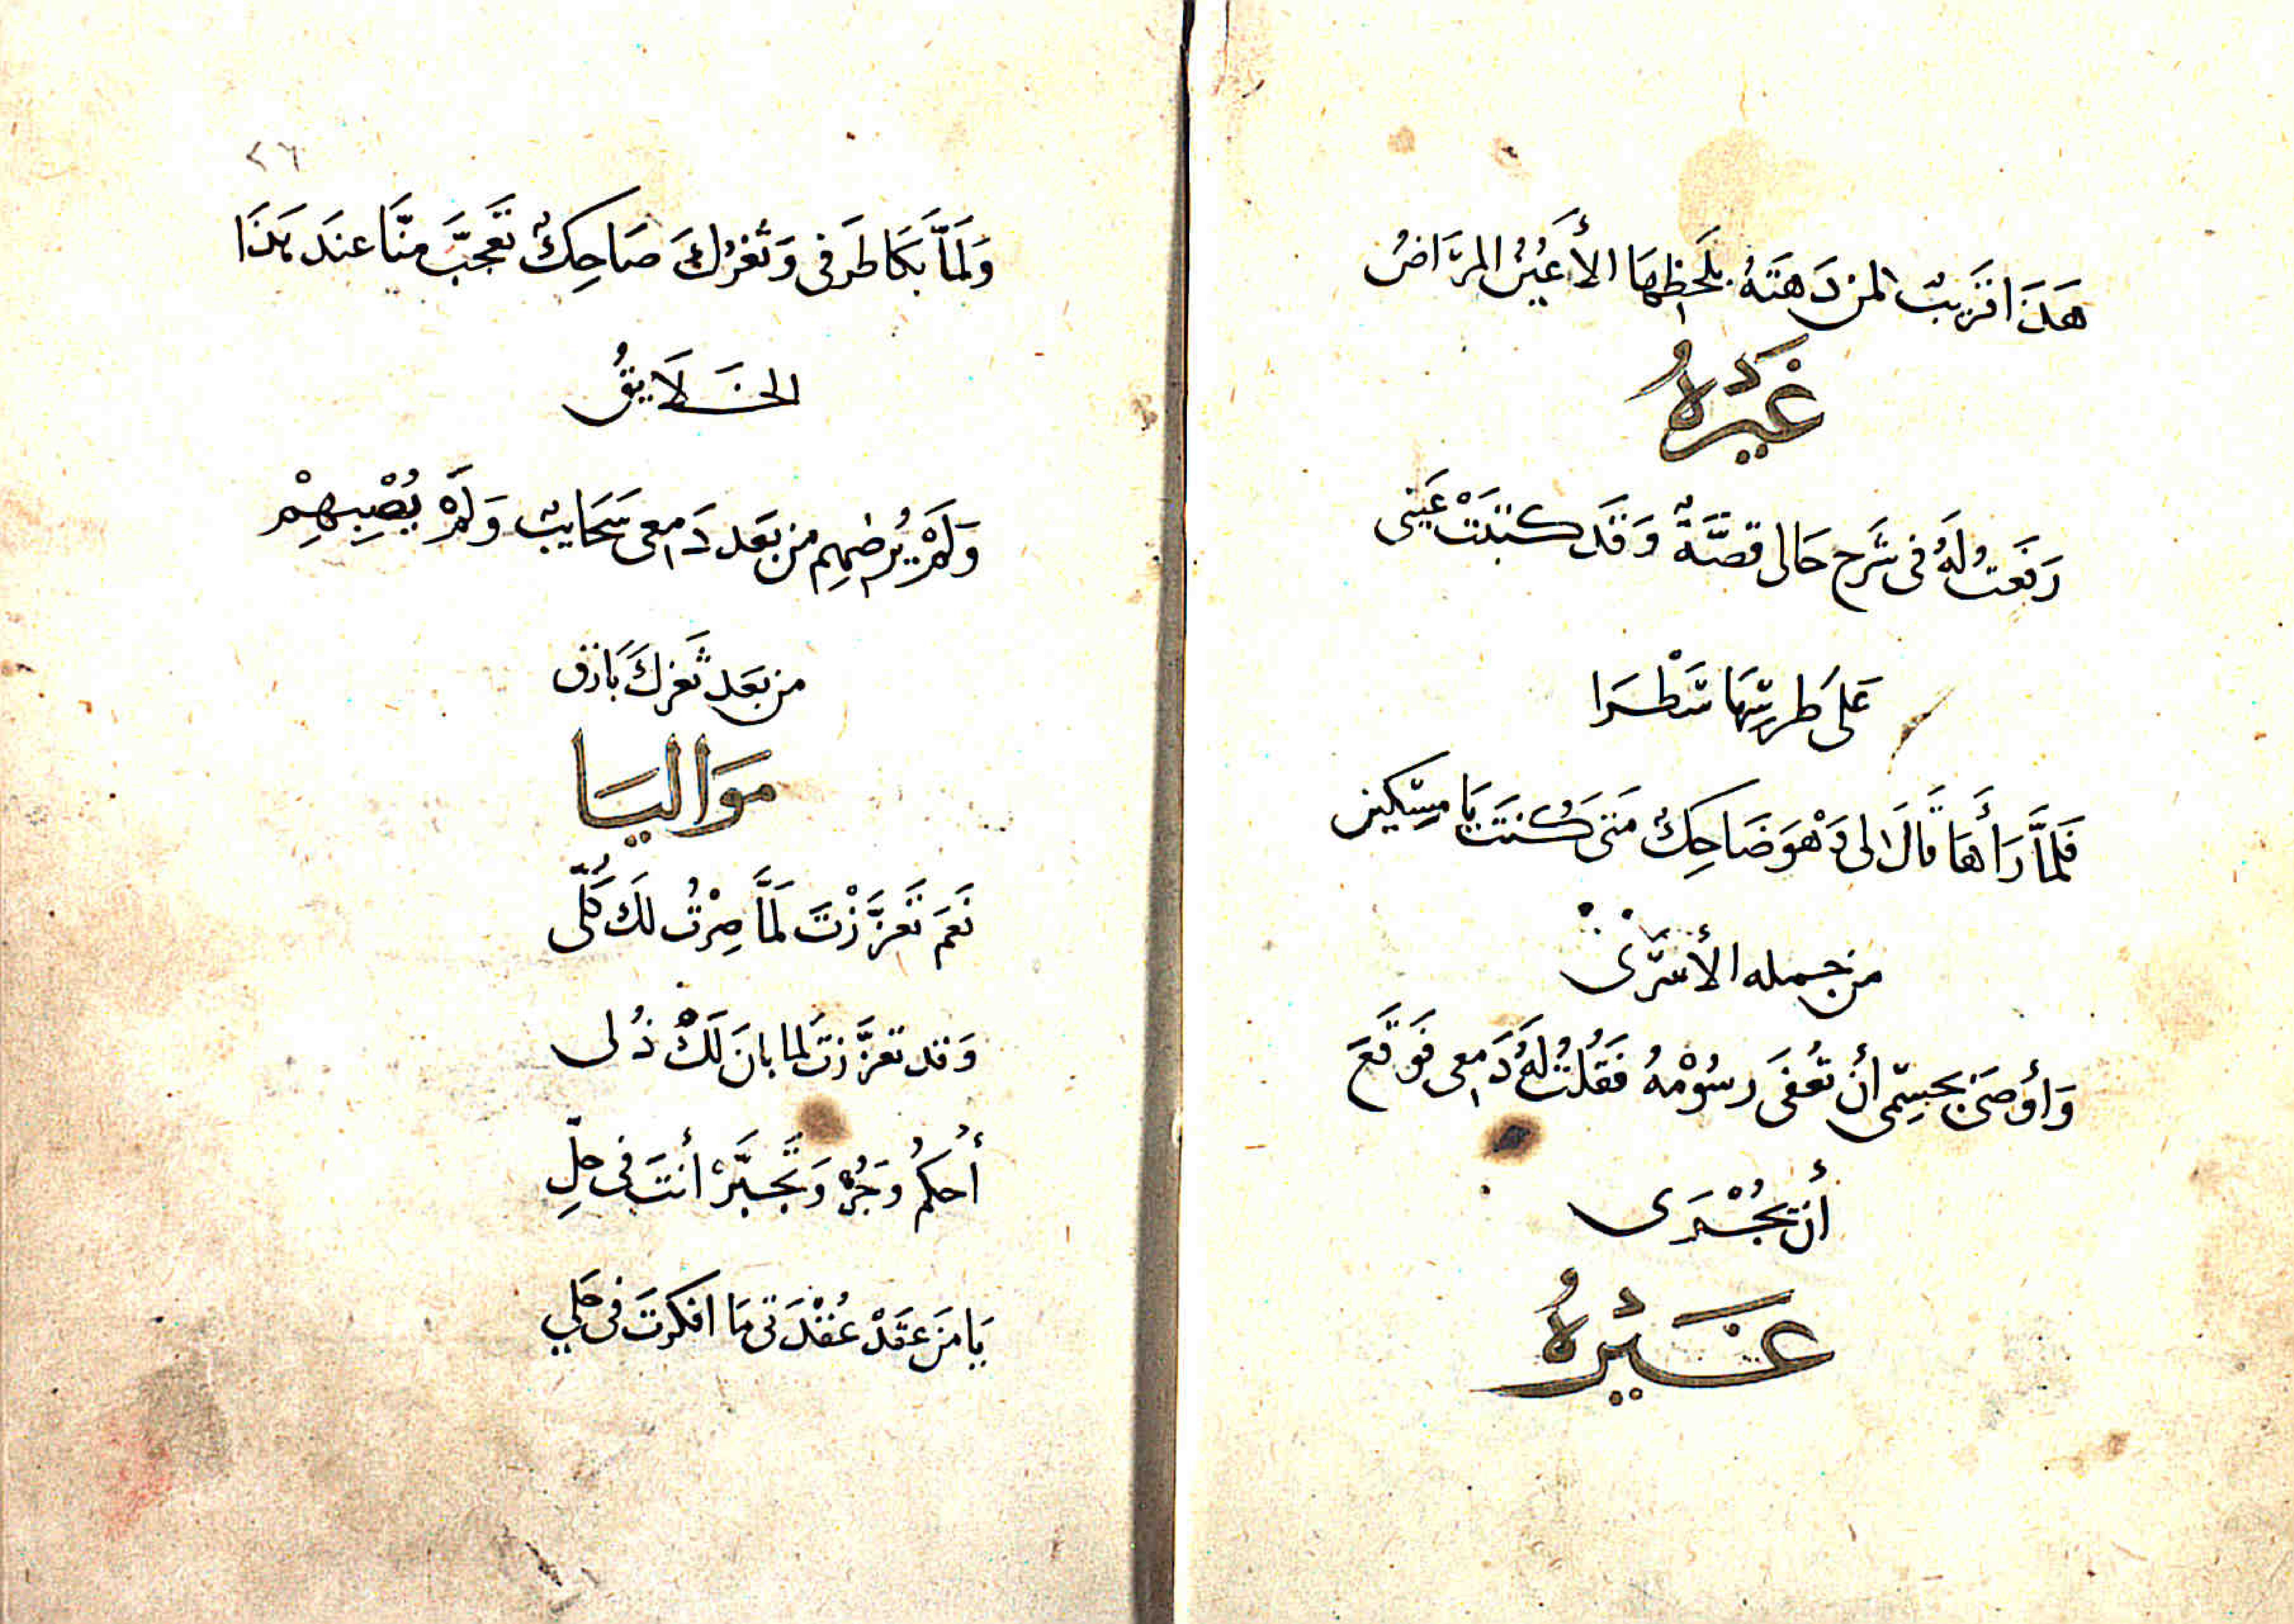 هَذَا قَرِيبٌ لمن دَهَتهُ بلَحظِهَا الأَعيُنُ المرَاضُ
غَيرُهُ
رَفَعتُ لَهُ فى شَرح حَالى قصَّةً وَقَد كَتَبَتْ عَينى
عَلىَ طرسِهَا سَطْرَا
فَلمَّا رَأَهَا قَالَ لى وَهْوَ ضَاحِكٌ مَتىَ كُنتَ يَا مسِكين
من جمله الأسرَى
وَأوصَى بجسِمى أنْ تُعفَى رسُوْمُهُ فَقُلتُ لَهُ دَمعى فوَقَّعَ
أن يُجْرَى
غَيْرُهُ
٢٦
وَلَمَّا بَكَا طَرفى وَثغرُكَ ضَاحِكٌ تَعَجبَّ منَّا عندَ هَذَا
الخَلَايقُ
وَلَمْ يُرضهِم من بَعَد دَمعى سَحَايبٌ وَلَمْ يُصْبِهِمْ
من بَعَد ثَغرِكَ بَارق
مَوَاليَا
نَعَم تَعَزَّزْتَ لمَّا صِرْتُ لَك كُلّى
وَقد تعزَّزتَ لما بانَ لَكْ ذُلى
أُحكم وَجُرْ وَتجَبَّرْ أنتَ فى حلِّ
يَا مَن عَقَدْ عُقْدَتى مَا افكرتَ فى حَلي